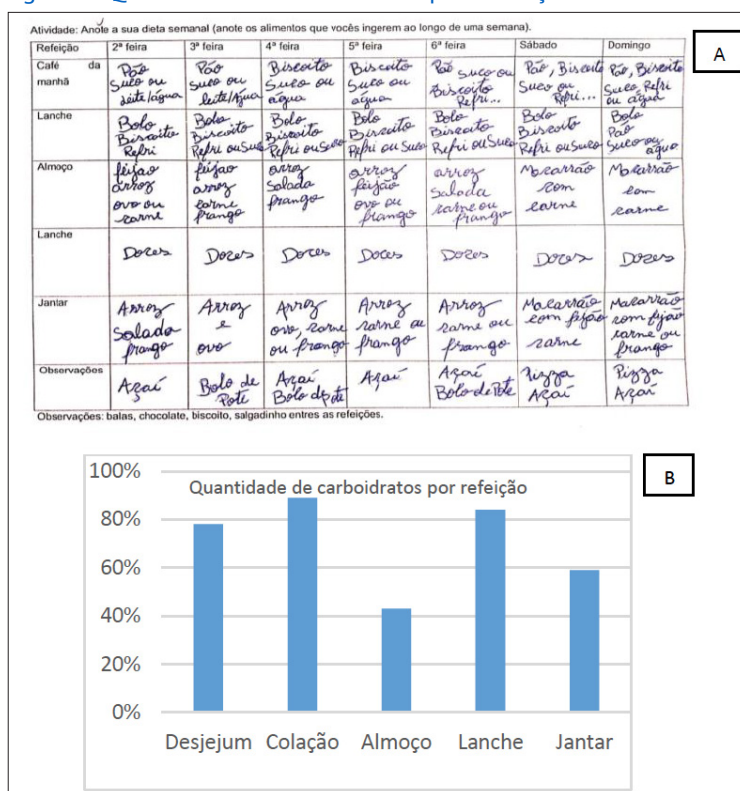 Atividade: Anote a sua dieta semanal (anote os alimentos que vocês ingerem ao longo de uma semana).
A
Refeição 2ª feira 3ª feira 4ª feira 5ª feira 6ª feira Sábado Domingo
Café da manhã
Pão
Suco ou
leite/água
Pão
Suco ou
leite/água
Biscoito
Suco ou
água
Biscoito
Suco ou
água
Pão suco ou
Biscoito
Refri...
Pão, Biscoito
Suco ou
Refri...
Pão, Biscoito
Suco, Refri
ou água
Lanche
Bolo
Biscoito
Refri
Bolo
Biscoito
Refri ou Suco
Bolo
Biscoito
Refri ou Suco
Bolo
Biscoito
Refri ou Suco
Bolo
Biscoito
Refri ou Suco
Bolo
Biscoito
Refri ou Suco
Bolo
Pão
Suco ou
água
Almoço
feijão
arroz
ovo ou
carne
feijão
arroz
carne
frango
arroz
salada
frango
arroz
feijão
ovo ou
frango
arroz
Salada
carne ou
frango
Macarrão
com
carne
Macarrão
com
carne
Lanche
Doces Doces Doces Doces Doces Doces Doces
Jantar
Arroz
Salada
frango
Arroz
e
ovo
Arroz
ovo, carne
ou frango
Arroz
carne ou
frango
Arroz
carne ou
frango
Macarrão
com feijão
carne
Macarrão
com feijão
carne ou
frango
Observações
Açaí
Bolo de
Pote
Açaí
Bolo de pote
Açaí
Açaí
Bolo de Pote
Pizza
Açaí
Pizza
Açaí
Observações: balas, chocolate, biscoito, salgadinho entres as refeições.
B
Quantidade de carboidratos por refeição
100%
80%
60%
40%
20%
0%
Desjejum Colação Almoço Lanche Jantar